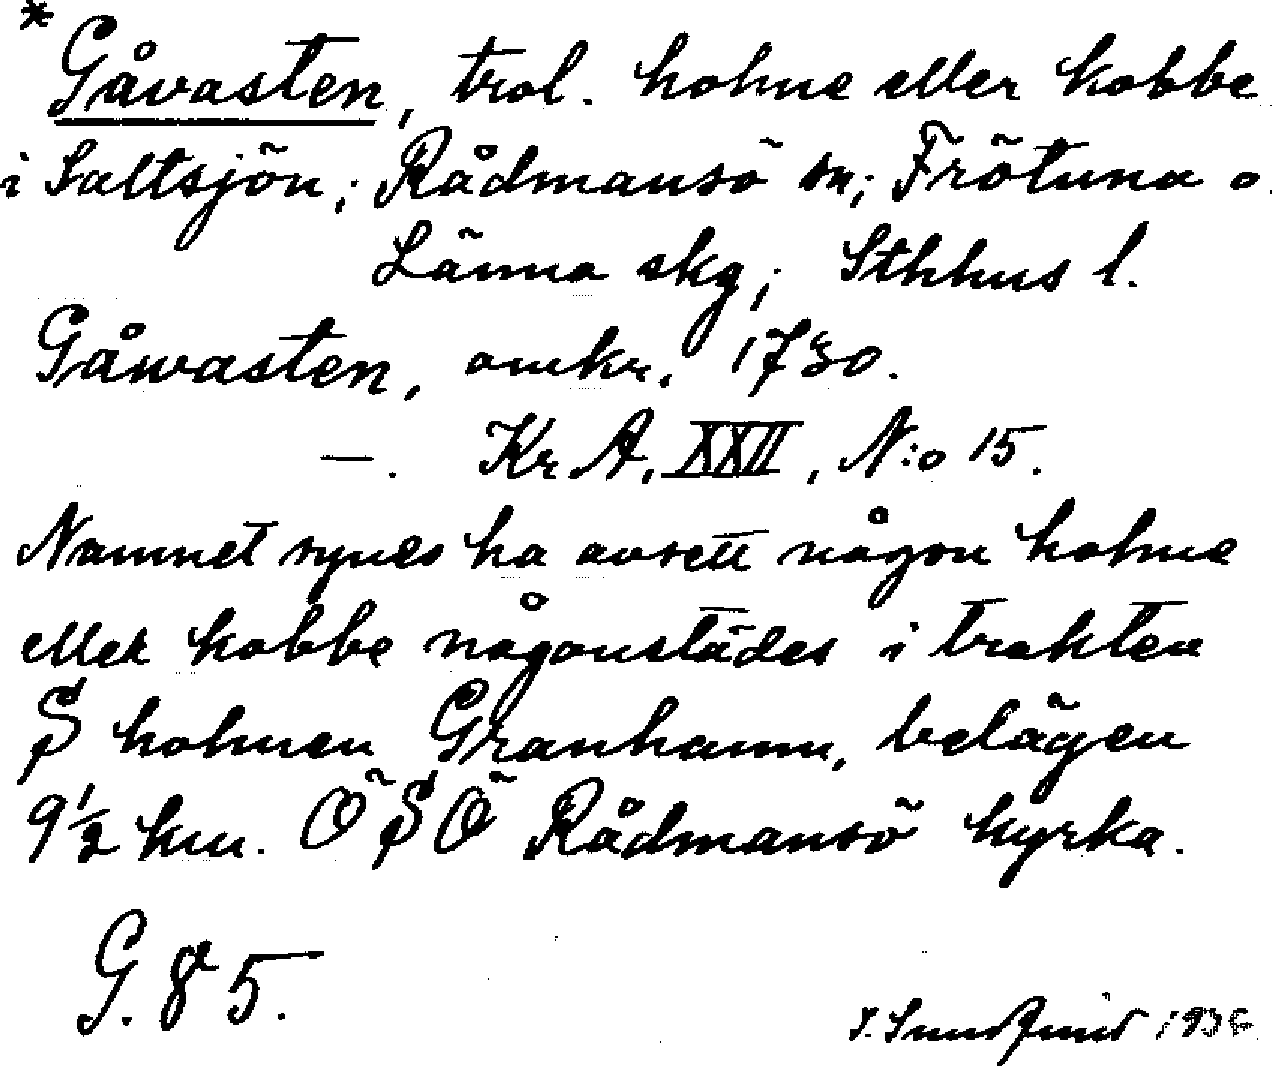 * Gåvasten, trol. holme eller kobbe
i Saltsjön; Rådmansö sn; Frötuna o.
Länna skg; Sthhus l.
Gåwasten, omkr. 1730.
—. Kr. A. XXII, N:o 15.
Namnet synes ha avsett någon holme
eller kobbe någonstädes i trakten
S holmen Granhamn, belägen
9½ km. ÖSÖ Rådmansö kyrka.
G. 85.
1936